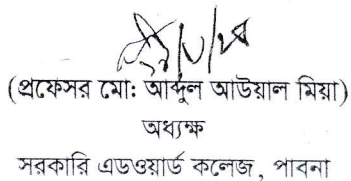 (প্রফেসর মো: আব্দুল আউয়াল মিয়া)
অধ্যক্ষ
সরকারি এডওয়ার্ড কলেজ, পাবনা